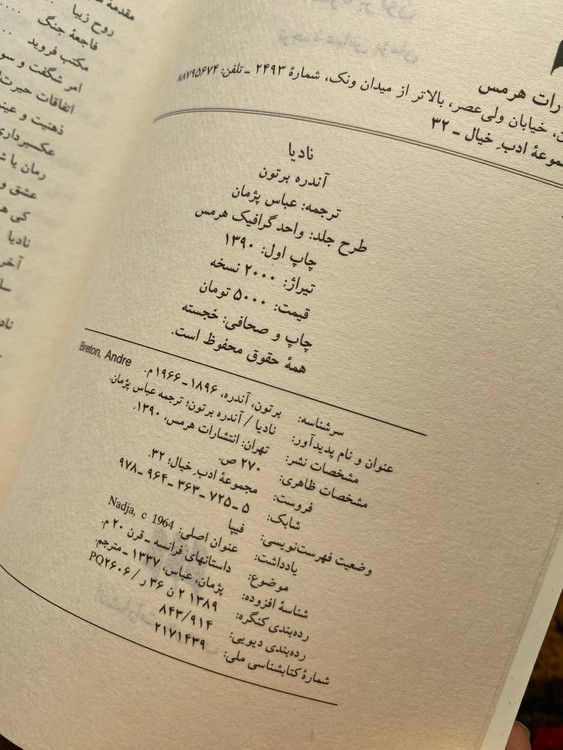 رات هرمس
خیابان ولی‌عصر، بالاتر از میدان ونک، شمارهٔ ۲۴۹۳ ـ تلفن: ۸۸۷۹۵۶۷۴
موعهٔ ادب خیال ـ ۳۲
نادیا
آندره برتون
ترجمه: عباس پژمان
طرح جلد: واحد گرافیک هرمس
چاپ اول: ۱۳۹۰
تیراژ: ۲۰۰۰ نسخه
قیمت: ۵۰۰۰ تومان
چاپ و صحافی: خجسته
همهٔ حقوق محفوظ است.
سرشناسه: برتون، آندره، ۱۸۹۶ ـ ۱۹۶۶م. Breton, Andre
عنوان و نام پدیدآور: نادیا / آندره برتون؛ ترجمه عباس پژمان.
مشخصات نشر: تهران: انتشارات هرمس، ۱۳۹۰.
مشخصات ظاهری: ۲۷۰ ص.
فروست: مجموعهٔ ادب خیال؛ ۳۲.
شابک: ۵ ـ ۷۲۵ ـ ۳۶۳ ـ ۹۶۴ ـ ۹۷۸
وضعیت فهرست‌نویسی: فیپا
یادداشت: عنوان اصلی: Nadja, c 1964
موضوع: داستانهای فرانسه ـ قرن ۲۰ م.
شناسهٔ افزوده: پژمان، عباس، ۱۳۳۷ ـ مترجم.
رده‌بندی کنگره: ۱۳۸۹ ۲ ن ۳۶ ر / PQ۲۶۰۶
رده‌بندی دیویی: ۸۴۳/۹۱۴
شمارهٔ کتابشناسی ملی: ۲۱۷۱۴۳۹
مقدمهٔ
روح زیبا
فاجعهٔ جنگ
مکتب فروید
امر شگفت و سو
اتفاقات حیرت‌ا
ذهنیت و عین
عکسبرداری
رمان یا ش
عشق و
کی ه
نادیا
آخر
سا
ناد